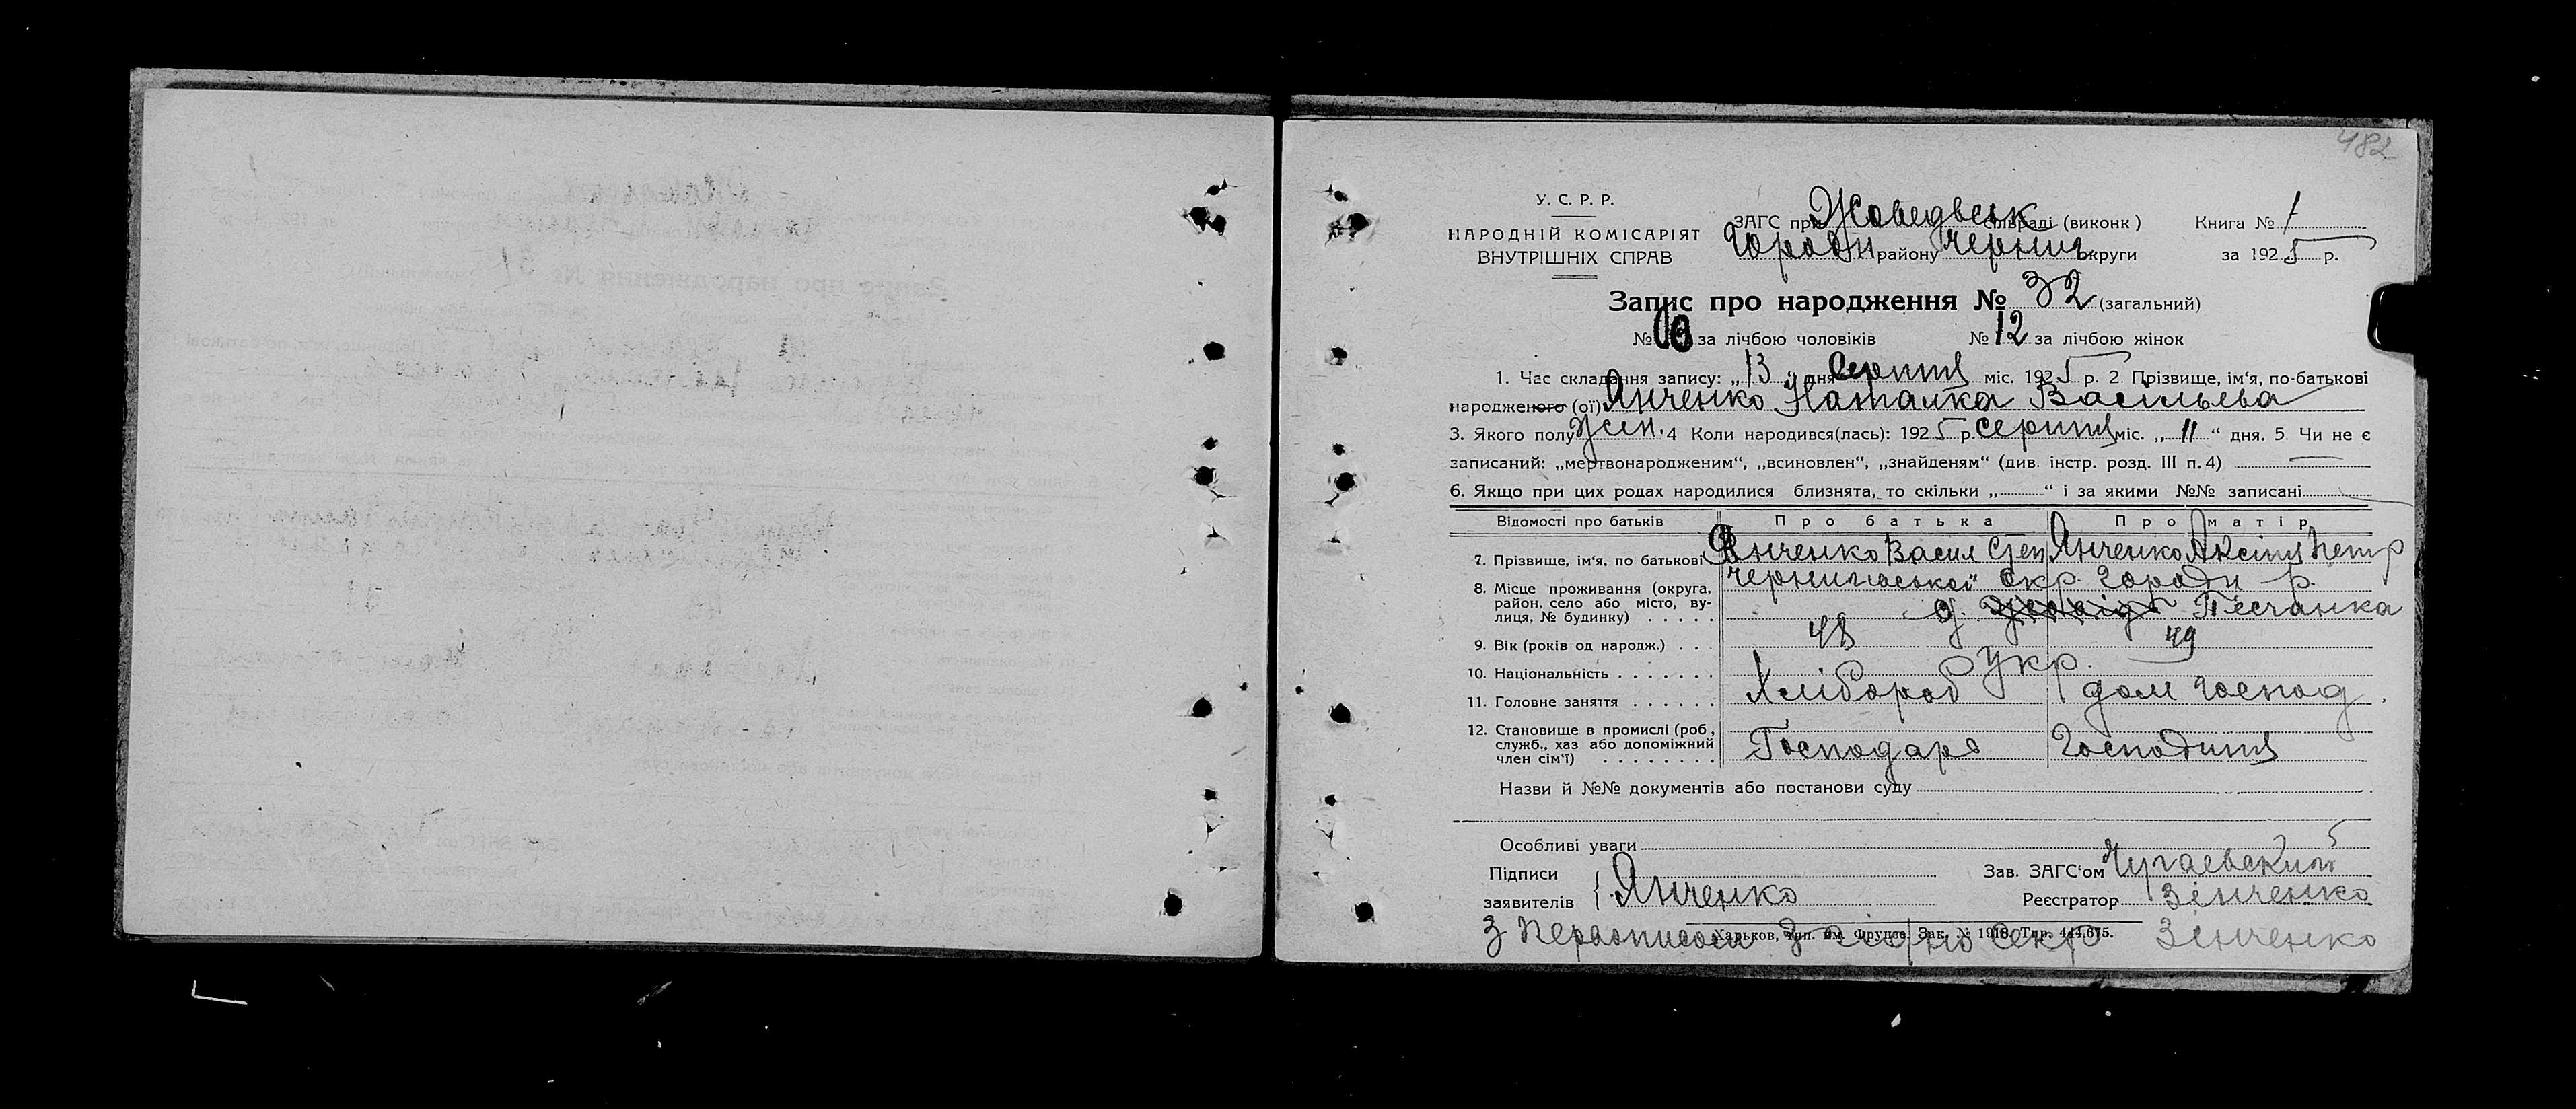 482
У. С. Р. Р.
НАРОДНІЙ КОМІСАРІЯТ
ВНУТРІШНІХ СПРАВ
ЗАГС при Жоведьськ сільраді (виконк)
Городн району Черниг округи
Книга № 1
за 1925 р.
Запис про народження № 32 (загальний)
№ за лічбою чоловіків № 12 за лічбою жінок
1. Час складання запису: „13“ дня Серпня міс. 1925 р. 2. Прізвище, ім'я, по-батькові
народженого (ої) Янченко Наталка Васильева
3. Якого полу жін. 4 Коли народився(лась): 1925 р. серпня міс. „11“ дня. 5. Чи не є
записаний: „мертвонародженим“, „всиновлен“, „знайденям“ (див. інстр. розд. III п. 4) —
6. Якщо при цих родах народилися близнята, то скільки „......“ і за якими №№ записані
Відомості про батьків Про батька Про матір
7. Прізвище, ім'я, по батькові Янченко Васил Степ Янченко Аксіня Петр
8. Місце проживання (округа, район, село або місто, вулиця, № будинку) Чернигівської окр. Городн р.
Пісчанка
9. Вік (років од народж.) 48 49
10. Національність Укр.
11. Головне заняття Хлібороб дом господ.
12. Становище в промислі (роб., служб., хаз або допоміжний член сім'ї) Господарь Господиня
Назви й №№ документів або постанови суду
Особливі уваги
Підписи заявителів { Янченко
Зав. ЗАГС'ом Чугаевский
Реєстратор Зінченко
Харьков, тип. им. Фрунзе. Зак. № 1918. Тир. 444.675.
З Первописом згідно Секр Зінченко